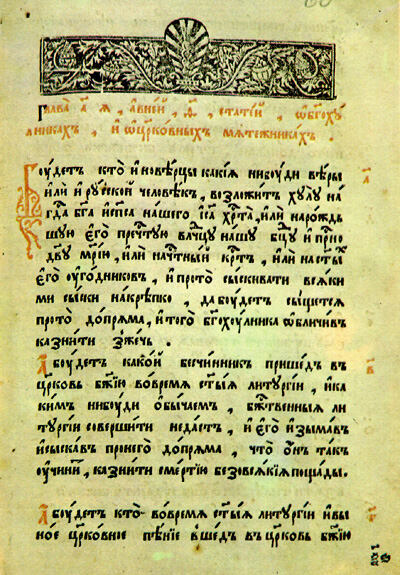 Глава а҃ я , а в ней , ѳ҃ , статей , ѡ бг҃охꙋ
лникахъ , и ѡ цр҃ковныхъ мѧтежникахъ .
Бꙋдетъ кто иновѣрцы какїѧ нибꙋди вѣры
или и рꙋской человѣкъ , возложитъ хꙋлꙋ на
гд҃а бг҃а и сп҃са нашего іс҃а хр҃та , или нарождь
шꙋю его пр҃чтꙋю влⷣчцꙋ нашꙋ бц҃ꙋ и прⷭно
дв҃ꙋ мр҃їю , или на чⷭтныи крⷭтъ , или на ст҃ы
его ꙋгодниковъ , и про то сыскивати всѧки
ми сыски накрѣпко , да бꙋдетъ сыщетсѧ
про то допрѧма , и того бг҃охꙋлника ѡбличив
казнити зжечь .
А бꙋдетъ какой бесчинникъ пришедъ въ
цр҃ковь бж҃їю во времѧ ст҃ыѧ литꙋргїи , и ка
кимъ нибꙋди обычаемъ , бжⷭтвенныѧ ли
тꙋргїи совершити не дастъ , и его изымавъ
и сыскавъ про него допрѧма , что онъ такъ
ꙋчинитъ , казнити смертїю безо всѧкїѧ пощады .
А бꙋдетъ кто во времѧ ст҃ыѧ литꙋргїи и в ы
ное цр҃ковное пѣнїе вшедъ въ цр҃ковь бж҃їю
а҃
в҃